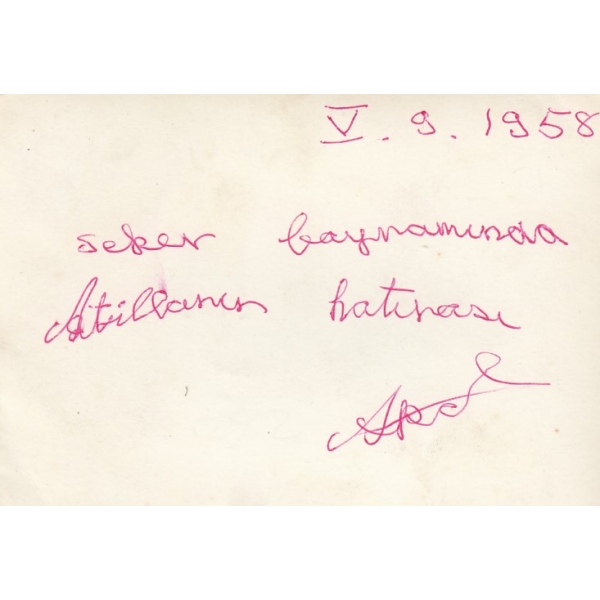 V. 9. 1958
seker bayramında
Atillanın hatırası